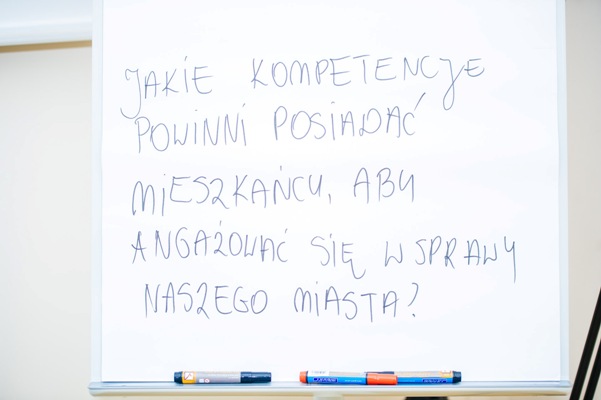 JAKIE KOMPETENCJE
POWINNI POSIADAĆ
MIESZKAŃCY, ABY
ANGAŻOWAĆ SIĘ W SPRAWY
NASZEGO MIASTA?